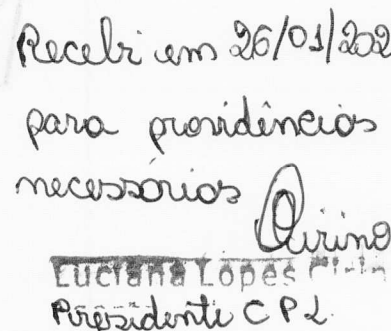 Recebi em 26/01/202
para providências
necessárias
Luciana Lopes
Presidente CPL